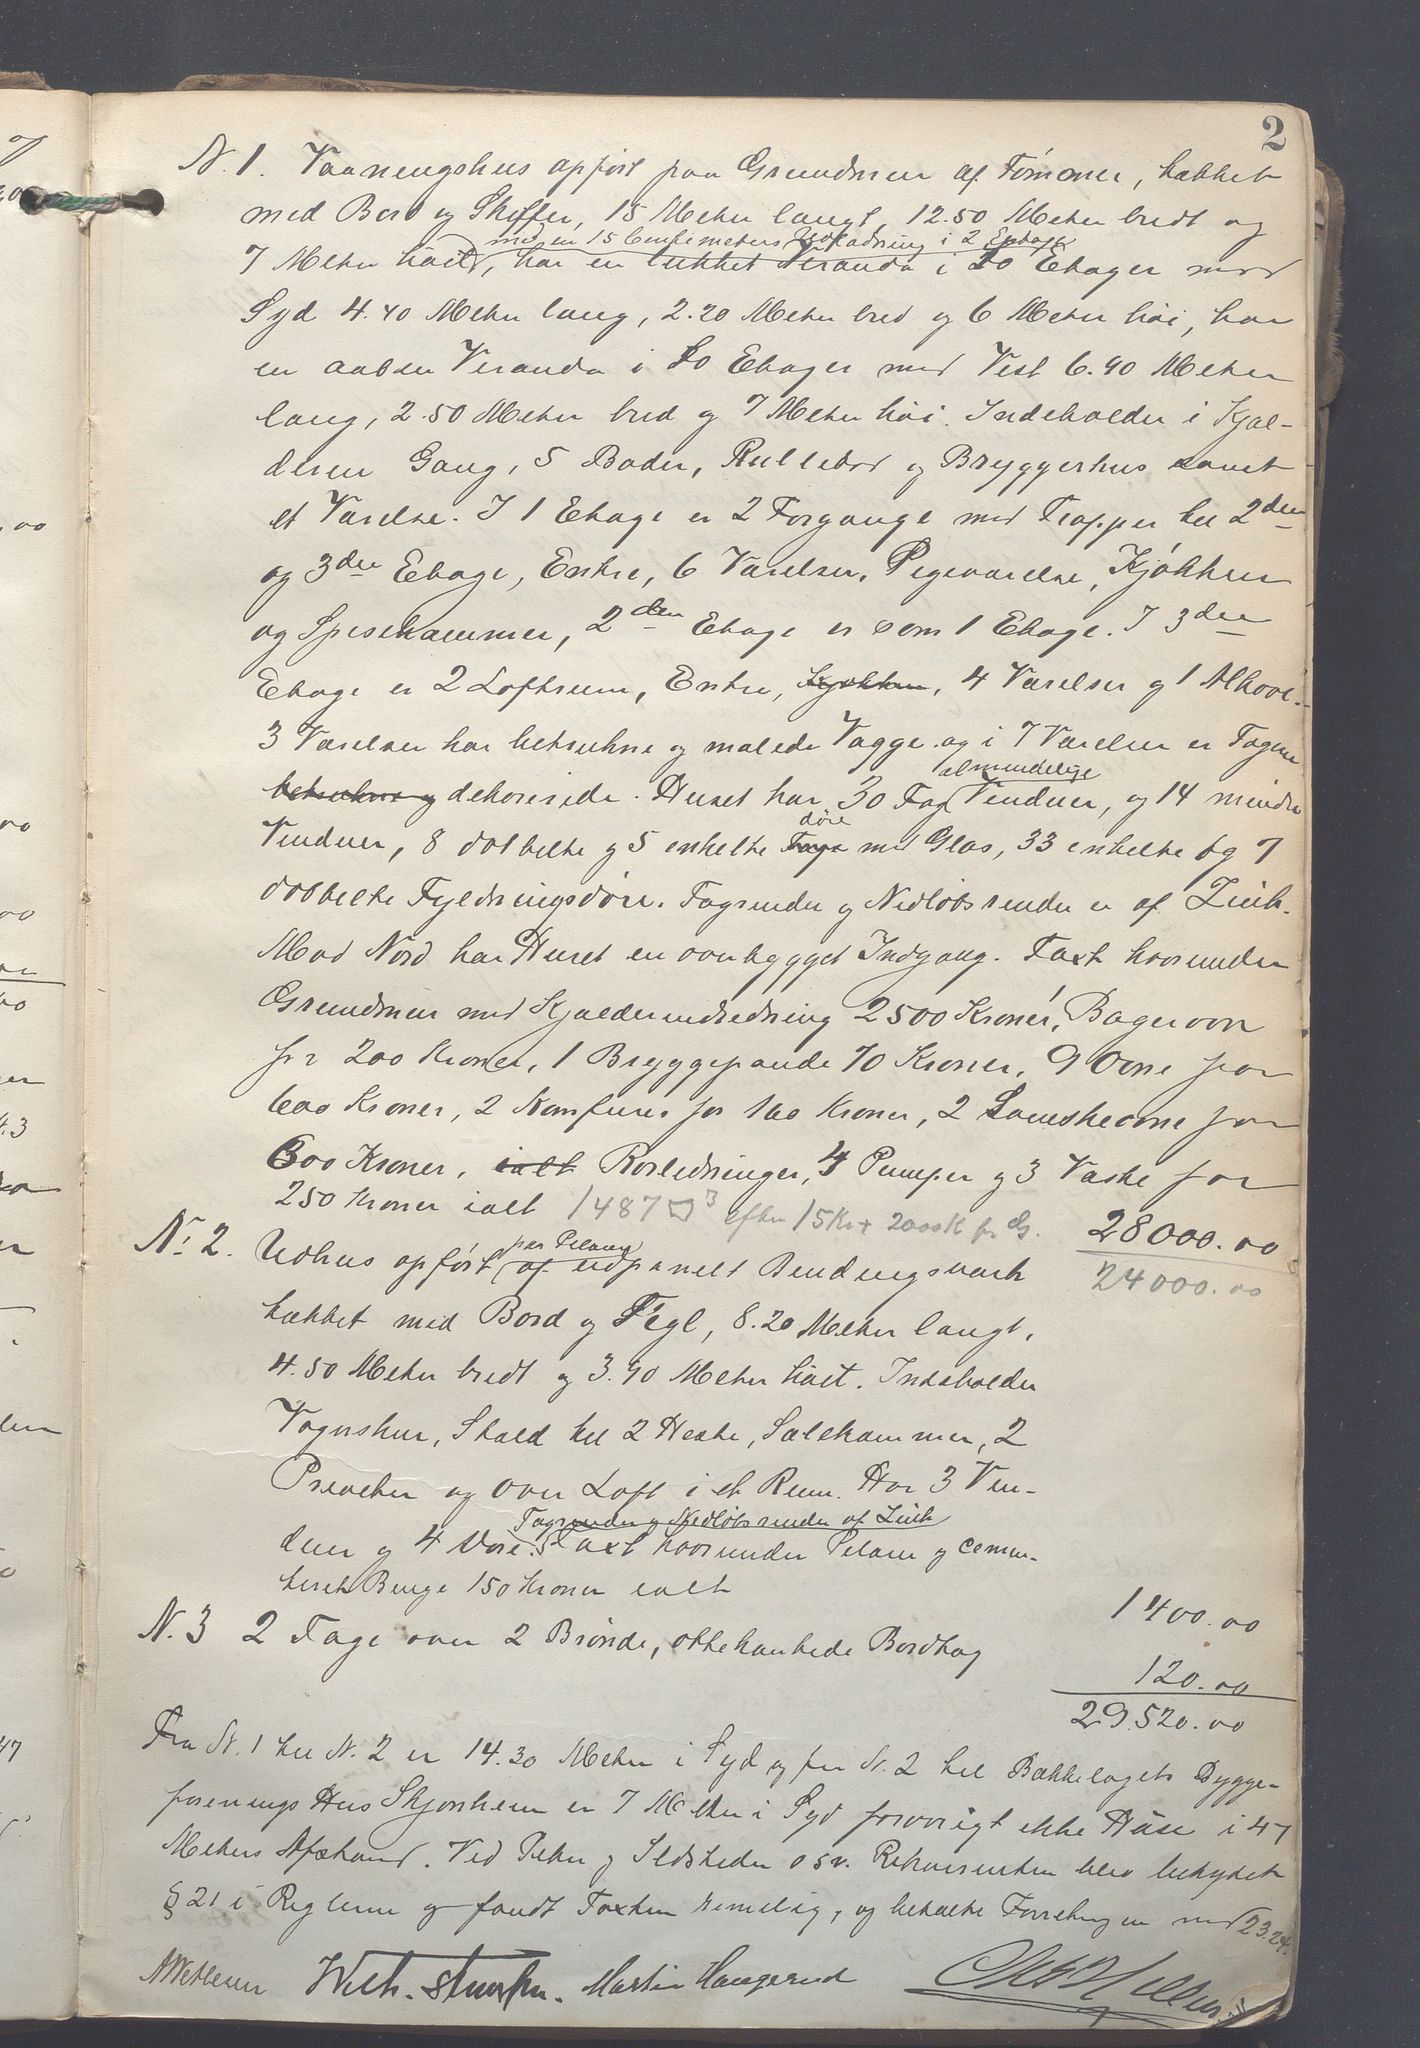 2
N. 1. Vaaningshus opført paa Grundmur af Tømmer, tækket
med Bord og Skiffer, 15 Meter langt, 12.50 Meter bredt og
med en 15 Centimeters Udladning i 2 Etage
7 Meter høit, har en lukket Veranda i to Etager mod
Syd 4.40 Meter lang, 2.20 Meter bred og 6 Meter høi, har
en aaben Veranda i to Etager mod Vest 6.40 Meter
lang, 2.50 Meter bred og 7 Meter høi. Indeholder i Kjæl-
deren Gang, 5 Boder, Rullebod og Bryggerhus samt
et Værelse. I 1 Etage er 2 Forgange med Trapper til 2den
og 3die Etage, Entre, 6 Værelser, Pigeværelse, Kjøkken
og Spisekammer, 2den Etage er som 1 Etage. I 3die
Etage er 2 Loftsrum, Entre, Kjøkken, 4 Værelser og 1 Alkove.
3 Værelser har betrukne og malede Vægge og i 7 Værelser er Tagene
almindelige
betrukne og dekorerede. Huset har 30 Fag Vinduer, og 14 mindre
døre
Vinduer, 8 dobbelte og 5 enkelte Fags med Glas, 33 enkelte og 7
dobbelte Fyldningsdøre. Tagrender og Nedløbsrender er af Zink.
Mod Nord har Huset en overbygget Indgang. Taxt hvorunder
Grundmur med Kjælderindredning 2500 Kroner, Bagerovn
for 200 Kroner, 1 Bryggepande 70 Kroner, 9 Ovne for
600 Kroner, 2 Komfurer for 160 Kroner, 2 Svenskeovne for
300 Kroner, ialt Rørledninger, 4 Pumper og 3 Vaske for
250 Kroner ialt 1487 □3 efter 15 Kr + 2000 K for G. 28000.00
24000.00
paa Pilarer
Nr 2. Udhus opført af udpanelt Bindingsværk
tækket med Bord og Tegl, 8.20 Meter langt,
4.50 Meter bredt og 3.40 Meter høit. Indeholder
Vognskur, Stald til 2 Heste, Salekammer, 2
Priveter og over Loft i et Rum. Har 3 Vin-
Tagrender og Nedløbsrender af Zink
duer og 4 Døre. Taxt hvorunder Pilarer og cemen-
teret Binge 150 Kroner ialt 1400.00
N. 3 2 Tage over 2 Brønde, ottekantede Bordtag 120.00
29.520.00
Fra N. 1 til N. 2 er 14.30 Meter i Syd og fra N. 2 til Bækkelagets Bygge-
forenings Hus Skjønheim er 7 Meter i Syd forøvrigt ikke Huse i 47
Meters Afstand. Ved Piber og Ildsteder osv. Rekvirenten blev betydet
§ 21 i Reglerne og fandt Taxten rimelig, og betalte Forretningen med 23.24.
Wilh.
Martin Haugerud